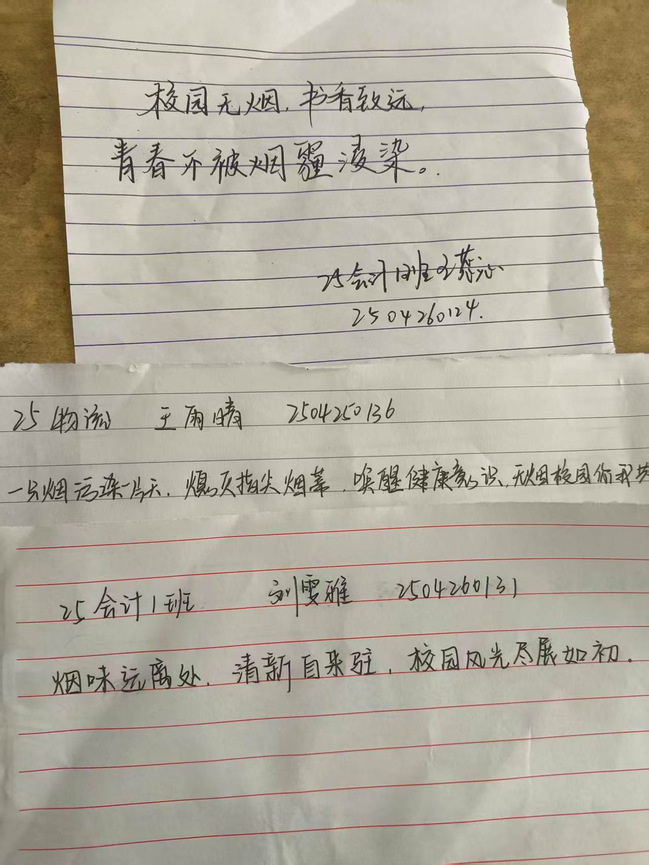 校园无烟，书香致远，
青春不被烟疆浸染。
25会计1班王蕊沁
2504260124.
25物流 王雨晴 2504250136
一只烟污染一片天，熄灭指尖烟蒂，唤醒健康意识，无烟校园你我共
25会计1班 刘雯雅 2504260131
烟味远离处，清新自来驻，校园风光尽展如初.